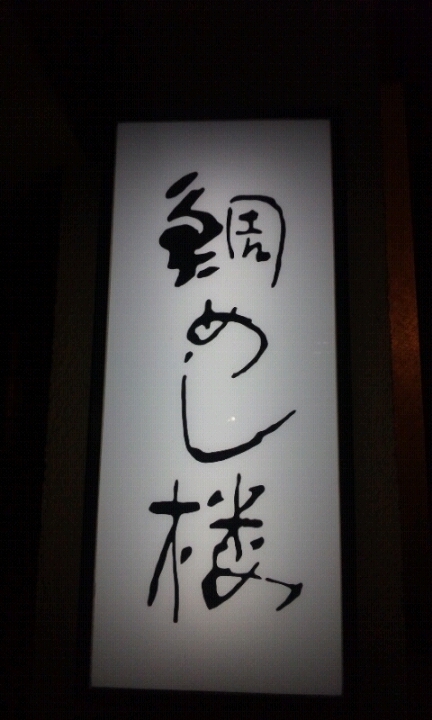 鯛めし楼